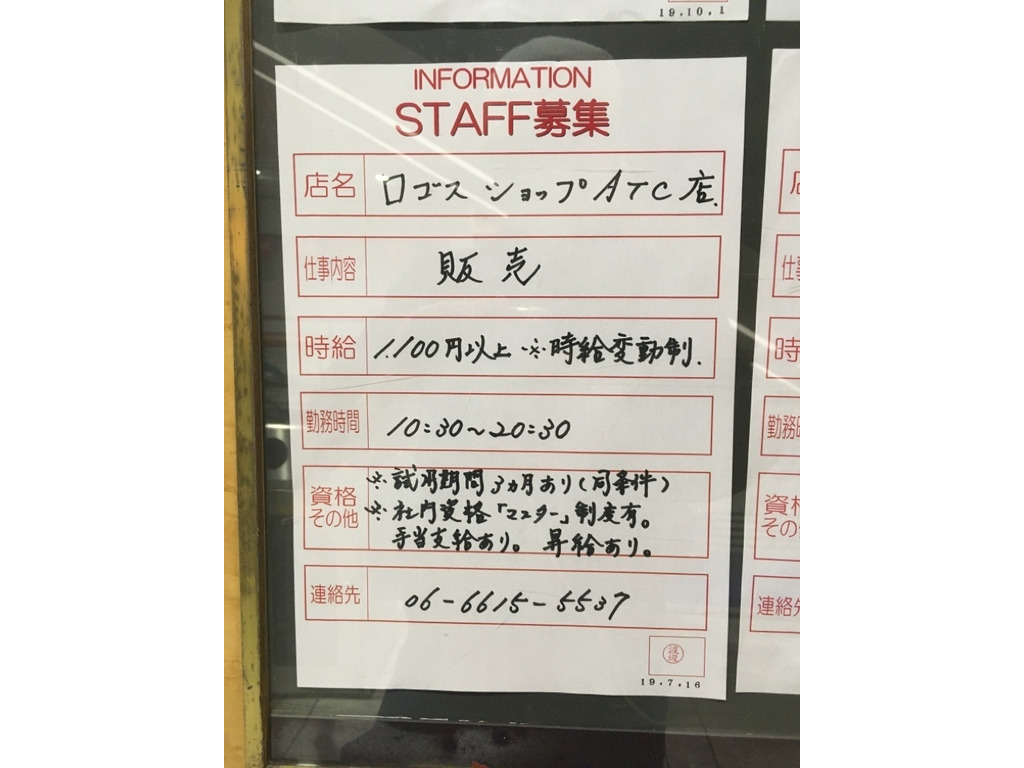 19.10.1
INFORMATION
STAFF募集
店名 ロゴスショップATC店.
仕事内容 販売
時給 1.100円以上 ※時給変動制.
勤務時間 10:30~20:30
資格 その他 ※試用期間3ヵ月あり(同条件)
※社内資格「マスター」制度有。
手当支給あり。 昇給あり。
連絡先 06-6615-5537
渡辺
19.7.16
時
勤務
資格
その
連絡